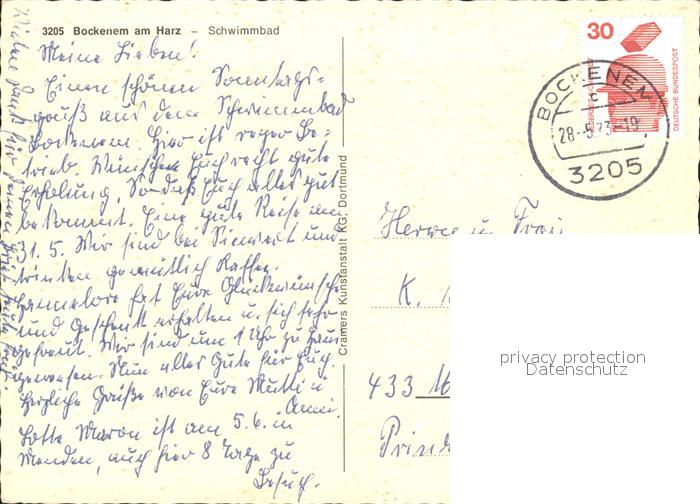 3205 Bockenem am Harz – Schwimmbad
Meine Lieben!
Einen schönen Sonntags-
gruß aus dem Schwimmbad
Bockenem. Hier ist reger Be-
trieb. Wünschen Euch recht gute
Erholung, so daß Euch alles gut
bekommt. Eine gute Reise am
31.5. Wir sind bei und
trinken gemütlich Kaffee.
Hannelore hat Eure Glückwünsche
und Geschenk erhalten u. sich sehr
gefreut. Wir sind um 1 Uhr zu Haus
gewesen. Nun alles Gute für Euch.
Herzliche Grüße von Eure Mutti u.
Lotte ist am 5.6. in
Menden, auch hier 8 Tage zu
Besuch.
Cramers Kunstanstalt KG, Dortmund
30
DEUTSCHE BUNDESPOST
BOCKENEM
c
28.-5.73-19
3205
Herrn u. Frau
K.
433
privacy protection
Datenschutz